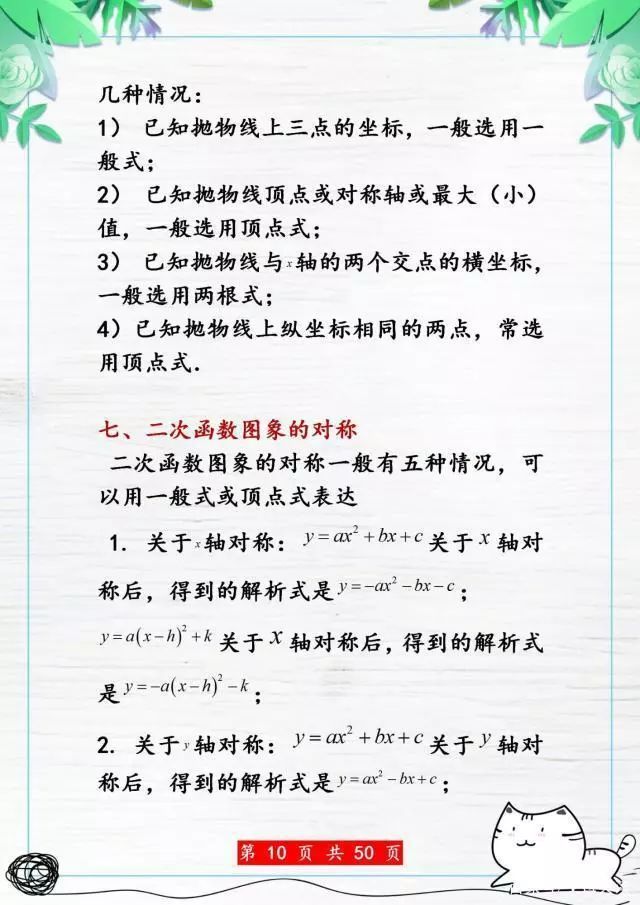 几种情况：
1） 已知抛物线上三点的坐标，一般选用一
般式；
2） 已知抛物线顶点或对称轴或最大（小）
值，一般选用顶点式；
3） 已知抛物线与x轴的两个交点的横坐标，
一般选用两根式；
4）已知抛物线上纵坐标相同的两点，常选
用顶点式.
七、二次函数图象的对称
二次函数图象的对称一般有五种情况，可
以用一般式或顶点式表达
1. 关于x轴对称：y=ax²+bx+c关于x轴对
称后，得到的解析式是y=-ax²-bx-c；
y=a(x-h)²+k关于x轴对称后，得到的解析式
是y=-a(x-h)²-k；
2. 关于y轴对称：y=ax²+bx+c关于y轴对
称后，得到的解析式是y=ax²-bx+c；
第 10 页 共 50 页